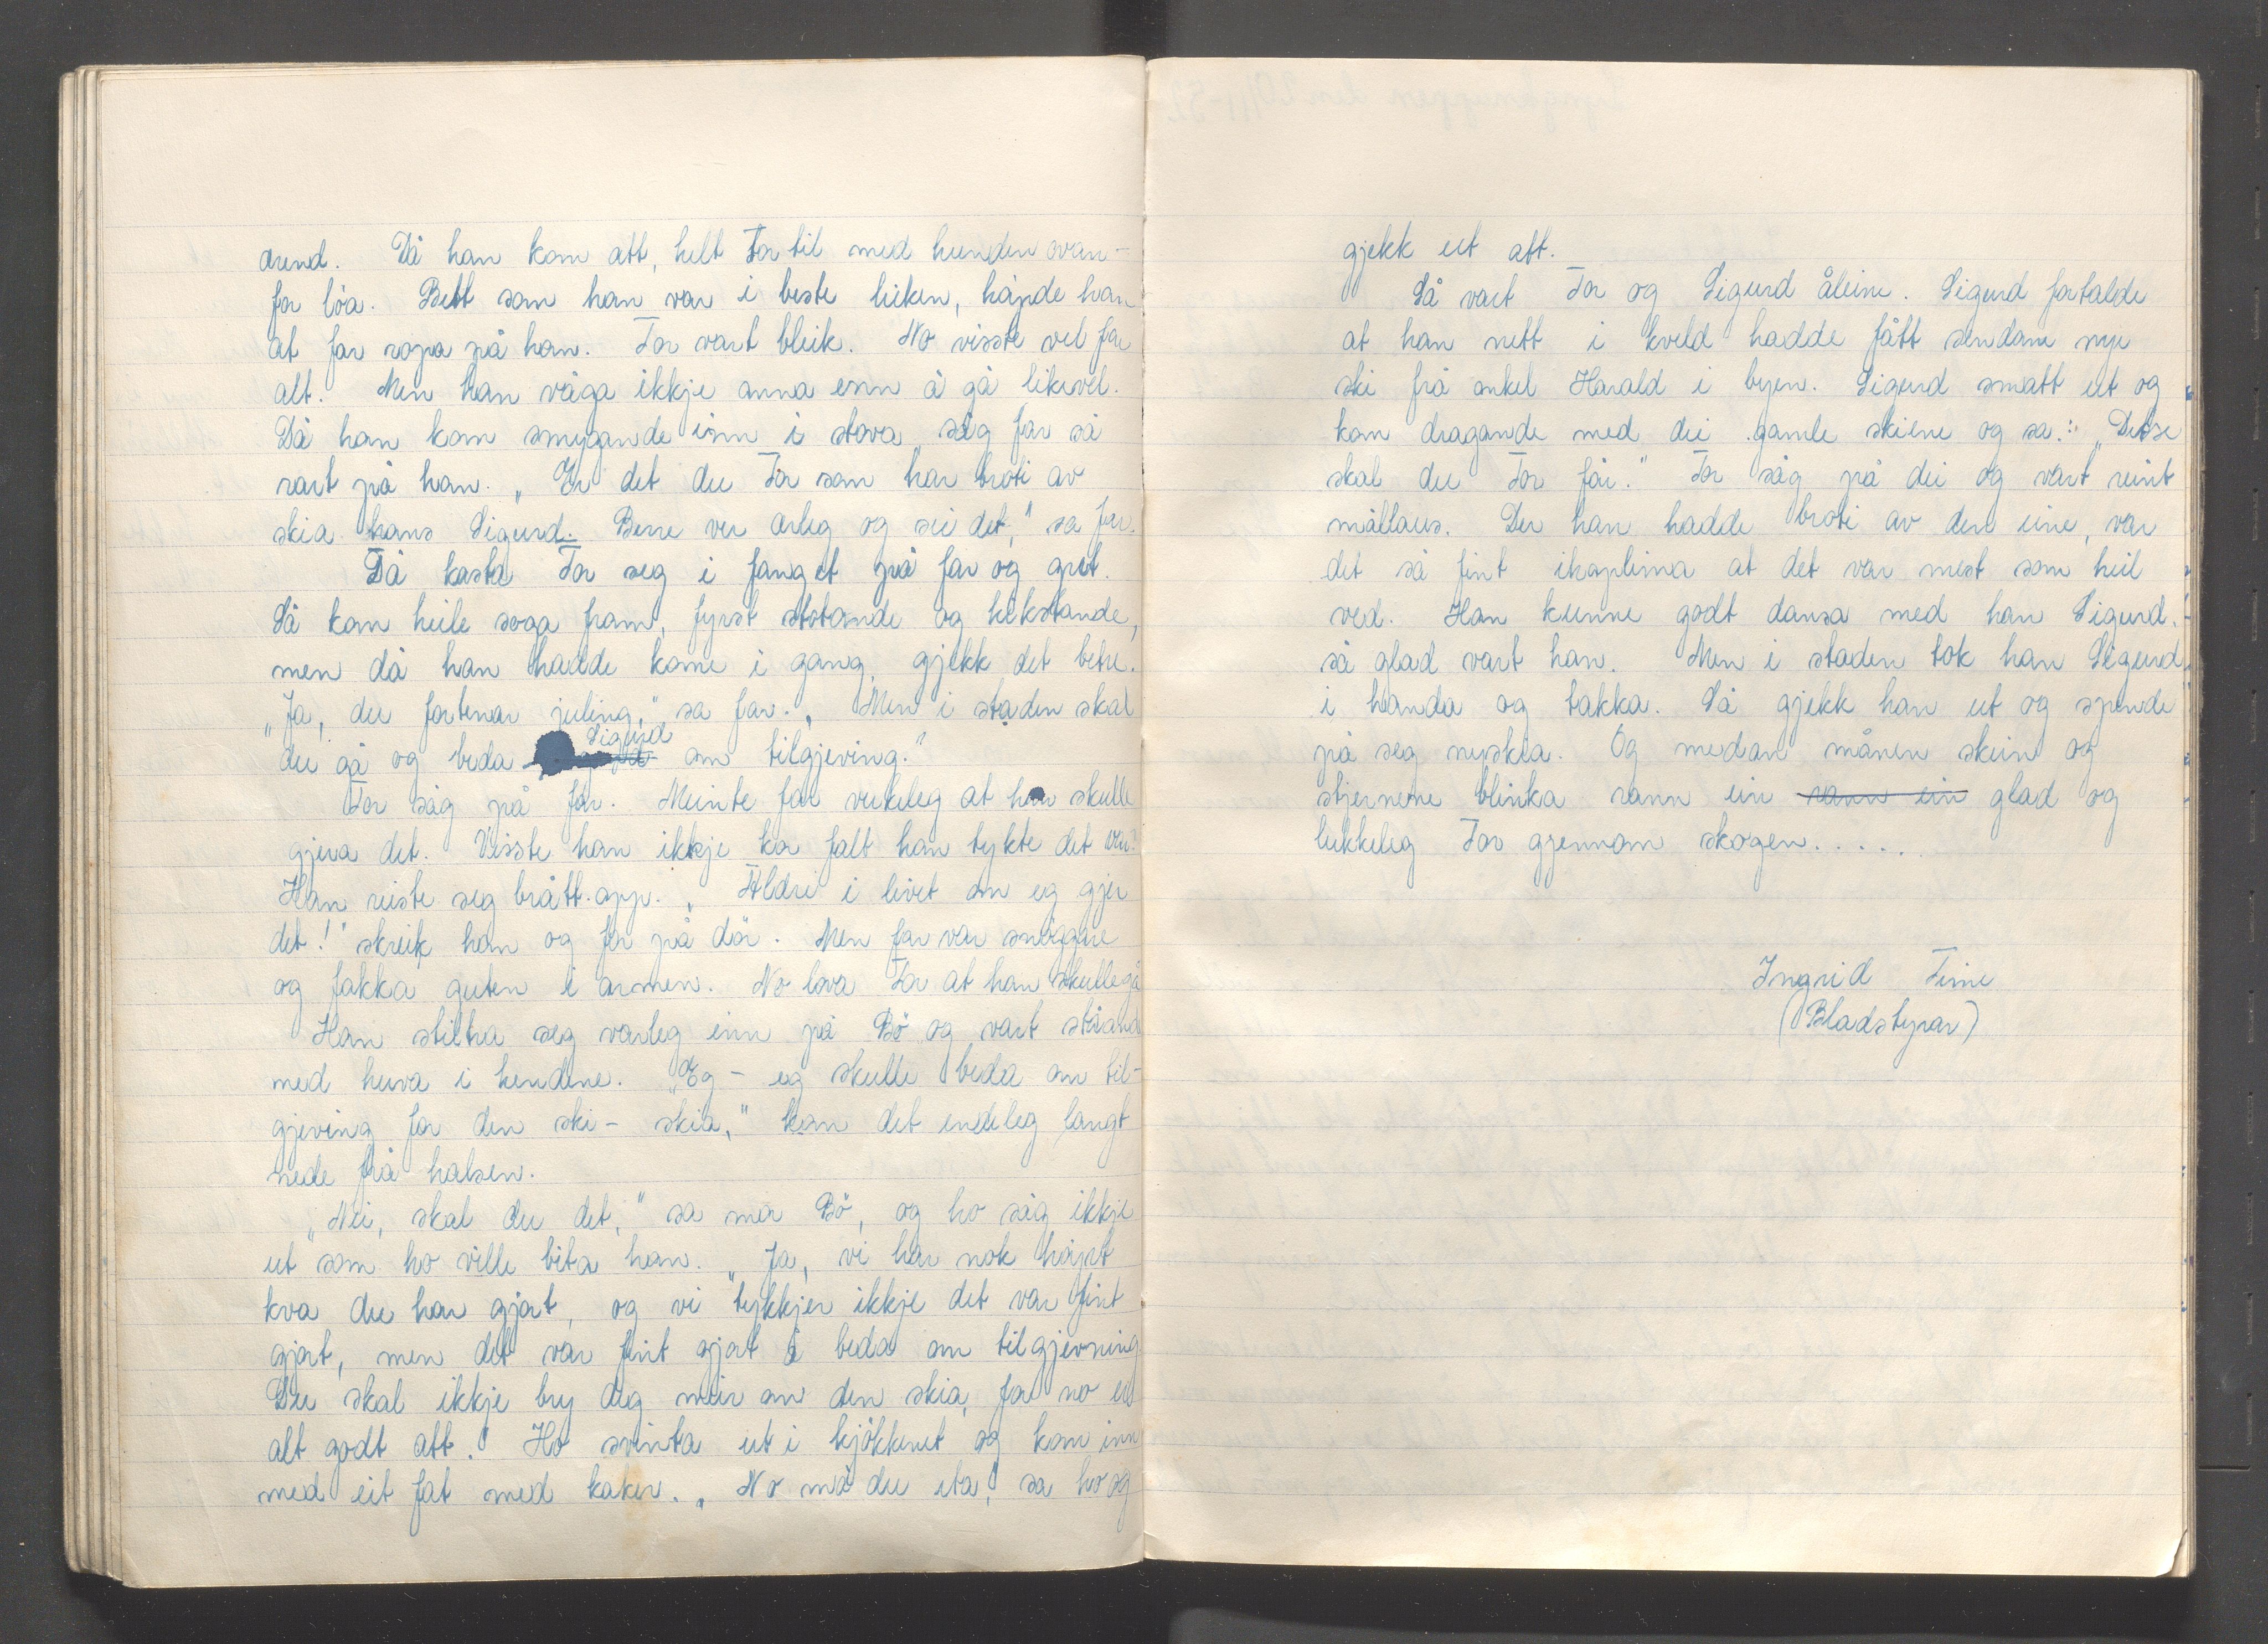 ærend. Då han kom att, helt Tor til med hunden ovan-
for löa. Bett som han var i beste leiken, höyrde han
at far ropa på han. Tor vart bleik. No visste vel far
alt. Men han våga ikkje anna enn å gå likevel.
Då han kom smygande inn i stova såg far så
rart på han. „Er det du Tor som har broti av
skia hans Sigurd. Berre ver ærleg og sei det," sa far.
Då kasta Tor seg i fanget på far og gret.
Så kom heile soga fram, fyrst stotande og hikstande,
men då han hadde kome i gang, gjekk det betre.
„Ja, du fortenar juling," sa far. „Men i staden skal
du gå og beda Sigurd om tilgjeving."
Tor såg på far. Meinte far verkeleg at han skulle
gjera det. Visste han ikkje kor fælt han tykte det var?
Han reiste seg brått opp. „Aldri i livet om eg gjer
det!" skreik han og for på dör. Men far var snöggare
og fakka guten i armen. No lova Tor at han skulle gå
Han stiltra seg varleg inn på Bö og vart ståande
med huva i hendene. „Eg - eg skulle beda om til-
gjeving for den ski - skia," kom det endeleg langt
nede frå halsen.
„Nei, skal du det," sa mor Bö, og ho såg ikkje
ut som ho ville bita han. „Ja, vi har nok höyrt
kva du har gjort, og vi tykkjer ikkje det var fint
gjort, men det var fint gjort å beda om tilgjevning
Du skal ikkje bry deg meir om den skia, for no er
alt godt att." Ho svinta ut i kjökkenet og kom inn
med eit fat med kaker. „No må du eta," sa ho og
gjekk ut att.
Så vart Tor og Sigurd åleine. Sigurd fortalde
at han nett i kveld hadde fått sendane nye
ski frå onkel Harald i byen. Sigurd smatt ut og
kom dragande med dei gamle skiene og sa: „Desse
skal du Tor få." Tor såg på dei og vart reint
mållaus. Der han hadde broti av den eine, var
det så fint ihoplima at det var mest som heil
ved. Han kunne godt dansa med han Sigurd,
så glad vart han. Men i staden tok han Sigurd
i handa og takka. Så gjekk han ut og spende
på seg nyskia. Og medan månen skein og
stjernene blinka rann ein rann ein glad og
lukkeleg Tor gjennom skogen.....
Ingrid Time
(Bladstyrar)